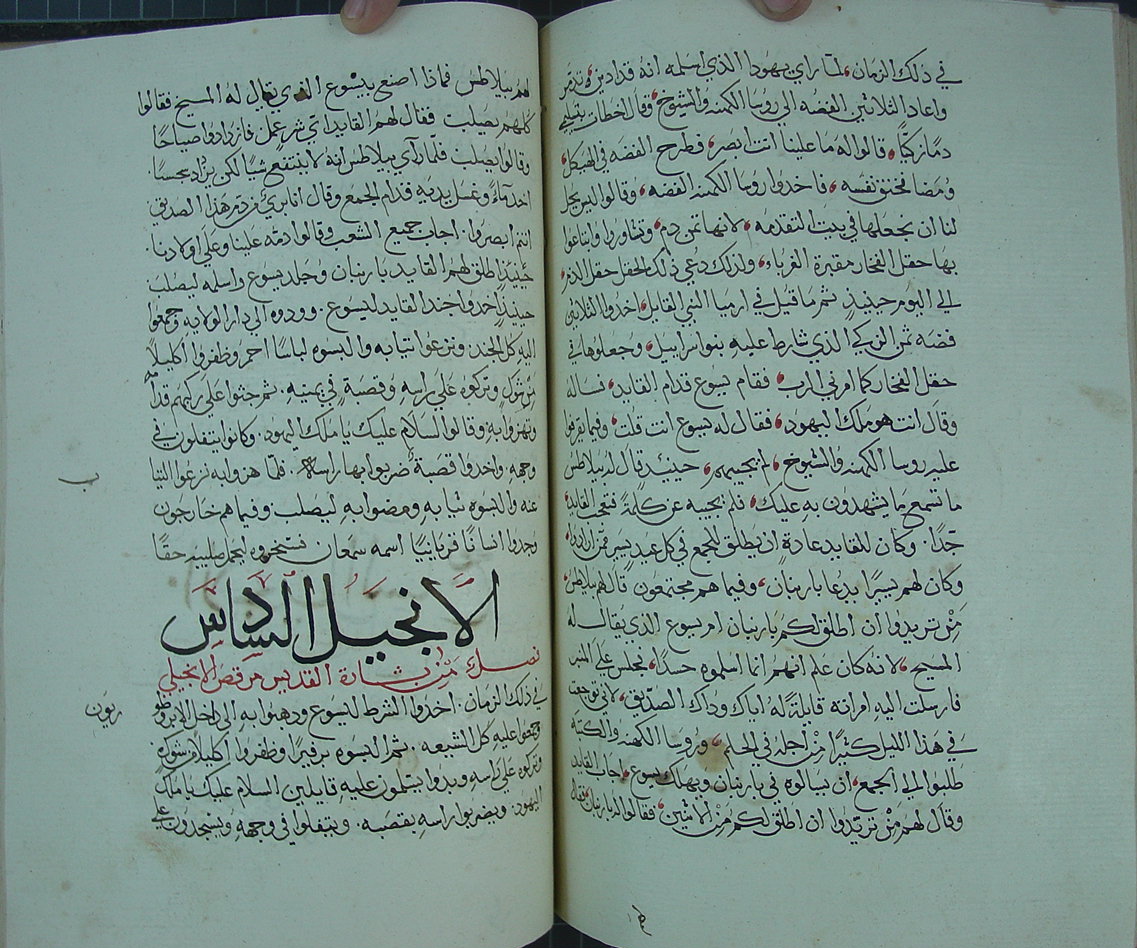 في ذلك الزمان، لما راي يهودا الذي اسلمه انه قد ادين وتدمر
واعاد الثلاثين الفضه الي روسا الكهنه والشيوخ، وقال اخطات بتسليمي
دما زكيا، قالوا له ما علينا انت ابصر، وطرح الفضه في الهيكل،
ومضا فخنق نفسه، فاخدوا روسا الكهنه الفضه، وقالوا ليس يحل
لنا ان نجعلها في بيت التقدمه، لانها ثمن دم، وتشاوروا وابتاعوا
بها حقل الفخار مقبرة الغرباء، ولذلك دعي ذلك الحقل حقل الدم،
الي اليوم حينيد تم ما قيل في ارميا النبي القايل، اخدوا الثلاثين
فضه ثمن الزكي الذي شارط عليه بنوا سراييل، وجعلوها في
حقل الفخار كما امرني الرب، فقام يسوع قدام القايد، فساله
وقال انت هو ملك اليهود، فقال له يسوع انت قلت، وفيما يقرفوا
عليه روسا الكهنه والشيوخ، لم يجيبهم، حينيد قال له بيلاطس
ما تسمع ما يشهدون به عليك، فلم يجيبه عن كلمة فتعجب القايد،
جدا، وكان للقايد عادة ان يطلق للجمع في كل عيد يسير من ارادوا،
وكان لهم يسيرا يدعا بارنبان، وفيما هم مجتمعون قال لهم بيلاطس،
من تريدوا ان اطلق لكم بارنبان ام يسوع الذي يقال له
المسيح، لانه كان علم انهم انما اسلموه حسدا، فجلس علي المنبر
فارسلت اليه امراته قايلة له اياك وداك الصديق، لاني توجعت
في هذا الليل كثيرا من اجله في الحلم، وروسا الكهنه والكتبه
طلبوا الي الجمع، ان يسالوه في بارنبان ويهلك يسوع، اجاب القايد
وقال لهم من تريدوا ان اطلق لكم من الاثنين، فقالوا له بارنبان، فقال
لهم بيلاطس فماذا اصنع بيسوع الذي يقال له المسيح فقالوا
كلهم يصلب، فقال لهم القايد اي شر عمل فازدادوا صياحا
وقالوا يصلب فلما رآي بيلاطس انه لا ينتفع شيا لكن يزداد سجسا
اخد مآء وغسل يديه قدام الجمع وقال انا بري من دم هذا الصديق
انتم ابصروا. اجاب جميع الشعب وقالوا دمه علينا وعلي اولادنا.
حينيذ اطلق لهم القايد بارنبان وجلد يسوع واسلمه ليصلب
حينيذ اخدوا جند القايد ليسوع. وودوه الي دار الولايه وجمعوا
اليه كل الجند ونزعوا ثيابه والبسوه لباسا احمر وظفروا اكليلا
من شوك وتركوه علي راسه وقصبة في يمينه. ثم جثوا علي ركبهم قدامه
ويهزوا به وقالوا السلام عليك يا ملك اليهود. وكانوا يتفلون في
وجهه. واخدوا قصبة ضربوا بها راسه. فلما هزوا به نزعوا الثيا
ب
عنه والبسوه ثيابه ومضوا به ليصلب وفيما هم خارجون
وجدوا انسانا قريانيا اسمه سمعان فسخروه ليحمل صليبه حقا
الانجيل السادس
فصل من بشارة القديس مرقص الانجيلي
في ذلك الزمان. اخدوا الشرط ليسوع ودهبوا به الي داخل الابروطو
ريون
وجمعوا عليه كل الشيعه. ثم البسوه برفيرا وظفروا اكليلا من شوك
وتركوه علي راسه وبدوا يسلمون عليه قايلين السلام عليك يا ملك
اليهود. ويضربوا راسه بقصبه. ويتفلوا في وجهه ويسجدون علي